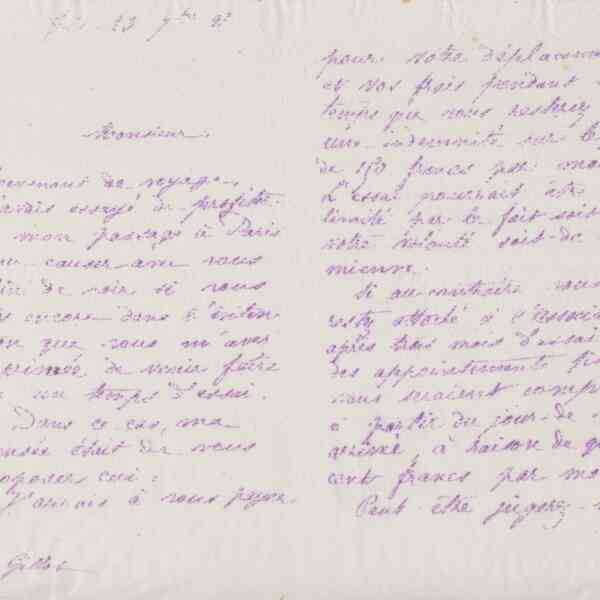 23 7bre
Monsieur.
de voyage
essayé de profiter
mon passage à Paris
causer avec vous
de voir si vous
encore dans l'inten
que vous m'avez
de venir faire
un temps d'essai.
Dans ce cas, ma
pensée était de vous
proposer ceci:
J'aurais à vous payer
Gillot
pour votre déplacement
et vos frais pendant
temps que vous resteriez
une indemnité
de 150 francs par mois
L'essai pourrait être
limité par le fait soit
votre volonté soit de
mienne.
Si au contraire vous
restez attaché à
après trois mois d'essai
des appointements
vous seraient comptés
à partir du jour de
arrivée, à raison de
cent francs par mois
Peut être jugerez